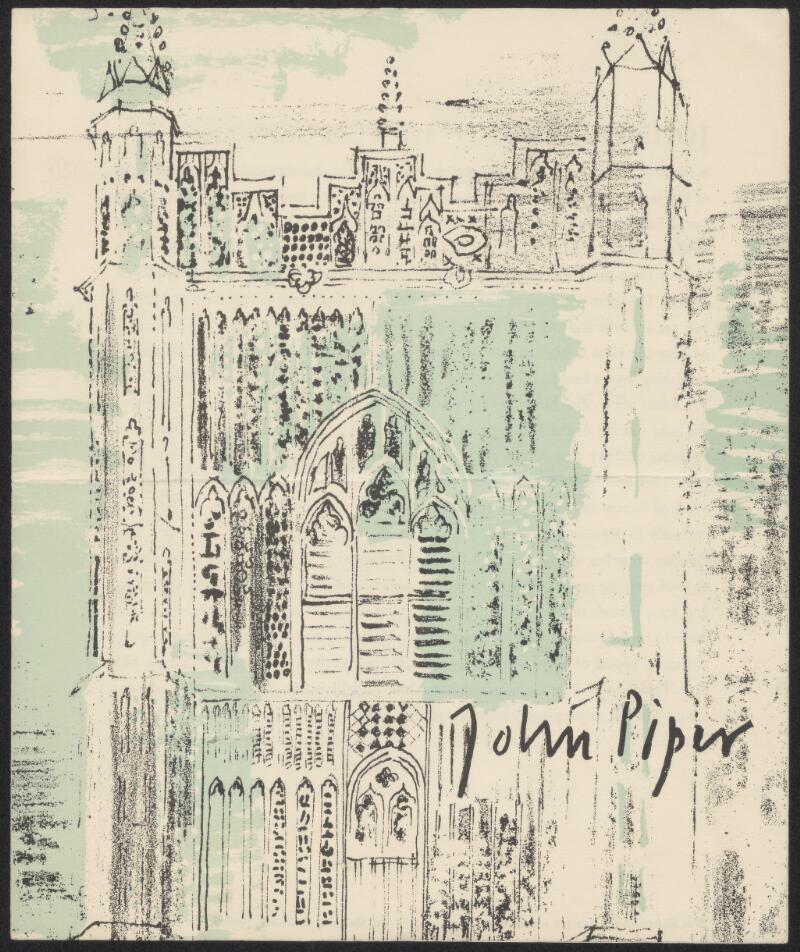 John Piper